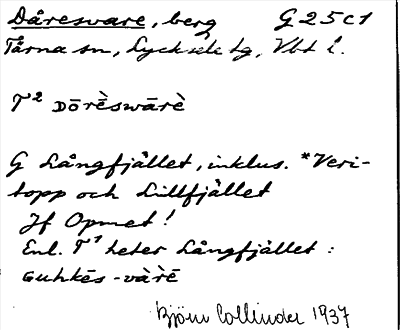 Dåresvare, berg G 25 c 1
Tärna sn, Lycksele lg, Vbt l.
T² Dōrèswārè
G Långfjället, inklus. *Veri-
topp och Lillfjället
Jf Opmet!
Enl. T¹ heter Långfjället :
Guhkēs-vàrē
Björn Collinder 1937